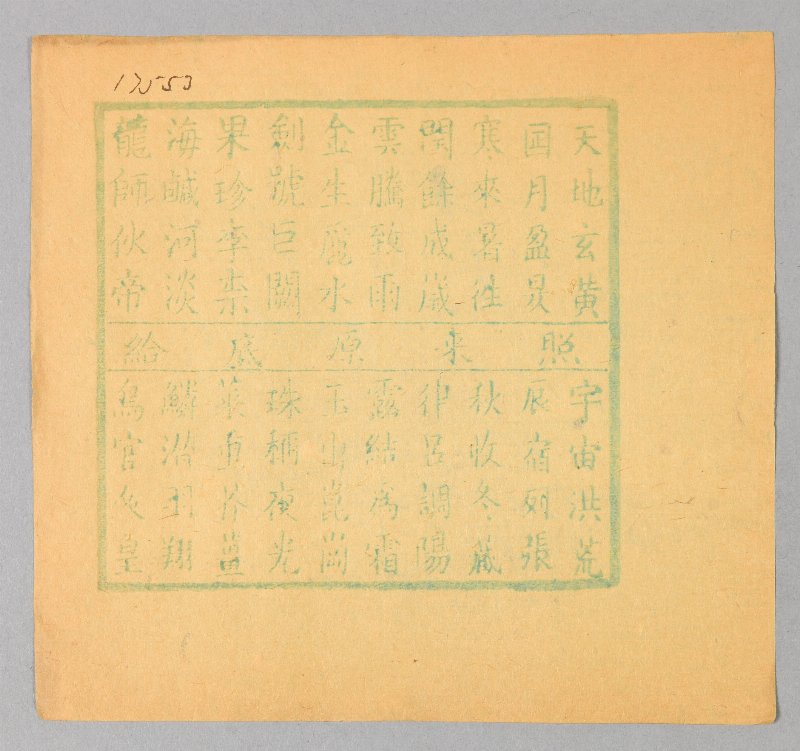 17553
天地玄黃
回月盈昃
寒來暑往
閏餘成歲
雲騰致雨
金生麗水
劍號巨闕
果珍李柰
海鹹河淡
龍師伙帝
照來原底給
宇宙洪荒
辰宿列張
秋收冬藏
律呂調陽
露結為霜
玉出崑崗
珠稱夜光
菜重芥薑
鱗潛羽翔
鳥官人皇